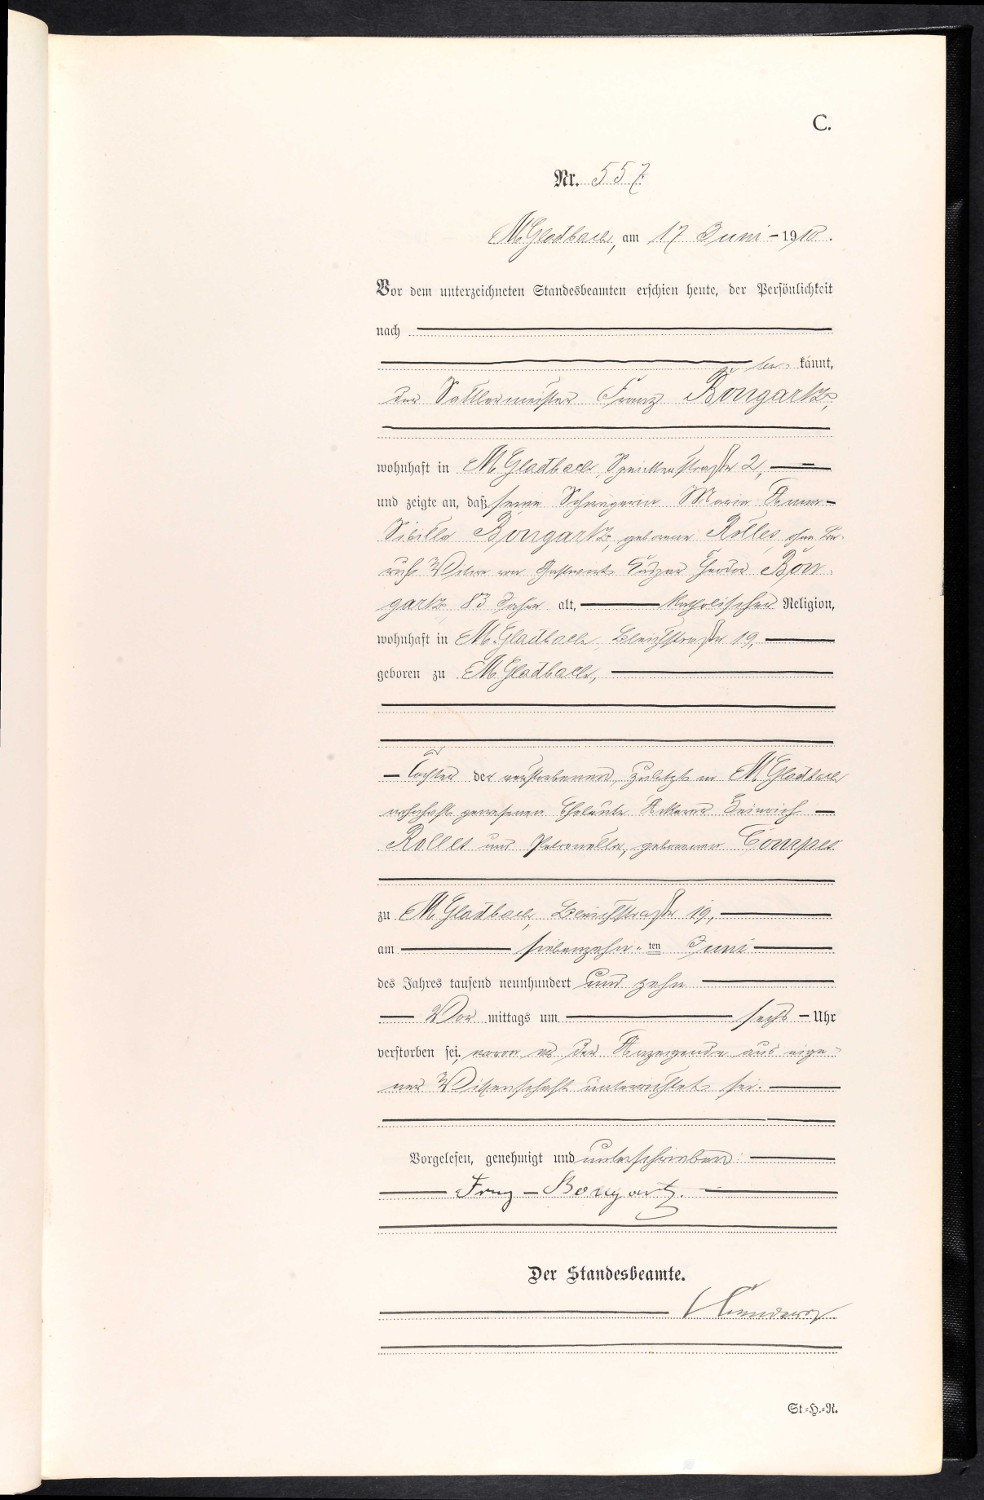 C.
Nr. 557.
M.Gladbach, am 17 Juni 1910.
Vor dem unterzeichneten Standesbeamten erschien heute, der Persönlichkeit
nach
be kannt,
der Sattlermeister Franz Bongartz,
wohnhaft in M.Gladbach, 2,
und zeigte an, daß seine Schwägerin Maria Anna
Sibilla Bongartz, geborene Rolles, ohne Be-
ruf, Witwe von Gastwirt Theodor Bon-
gartz, 83 Jahre alt, katholischer Religion,
wohnhaft in M.Gladbach, Bleichstraße 19,
geboren zu M.Gladbach,
Tochter der verstorbenen, zuletzt in M.Gladbach
wohnhaft gewesenen Eheleute Ackerer Heinrich
Rolles und Petronella, geborener Compes
zu M.Gladbach, Bleichstraße 19,
am siebenzehn ten Juni
des Jahres tausend neunhundert und zehn
Vor mittags um sechs Uhr
verstorben sei, wovon er der Anzeigende aus eige-
ner Wissenschaft unterrichtet sei.
Vorgelesen, genehmigt und unterschrieben
Franz Bongartz.
Der Standesbeamte.
St.=H.=R.